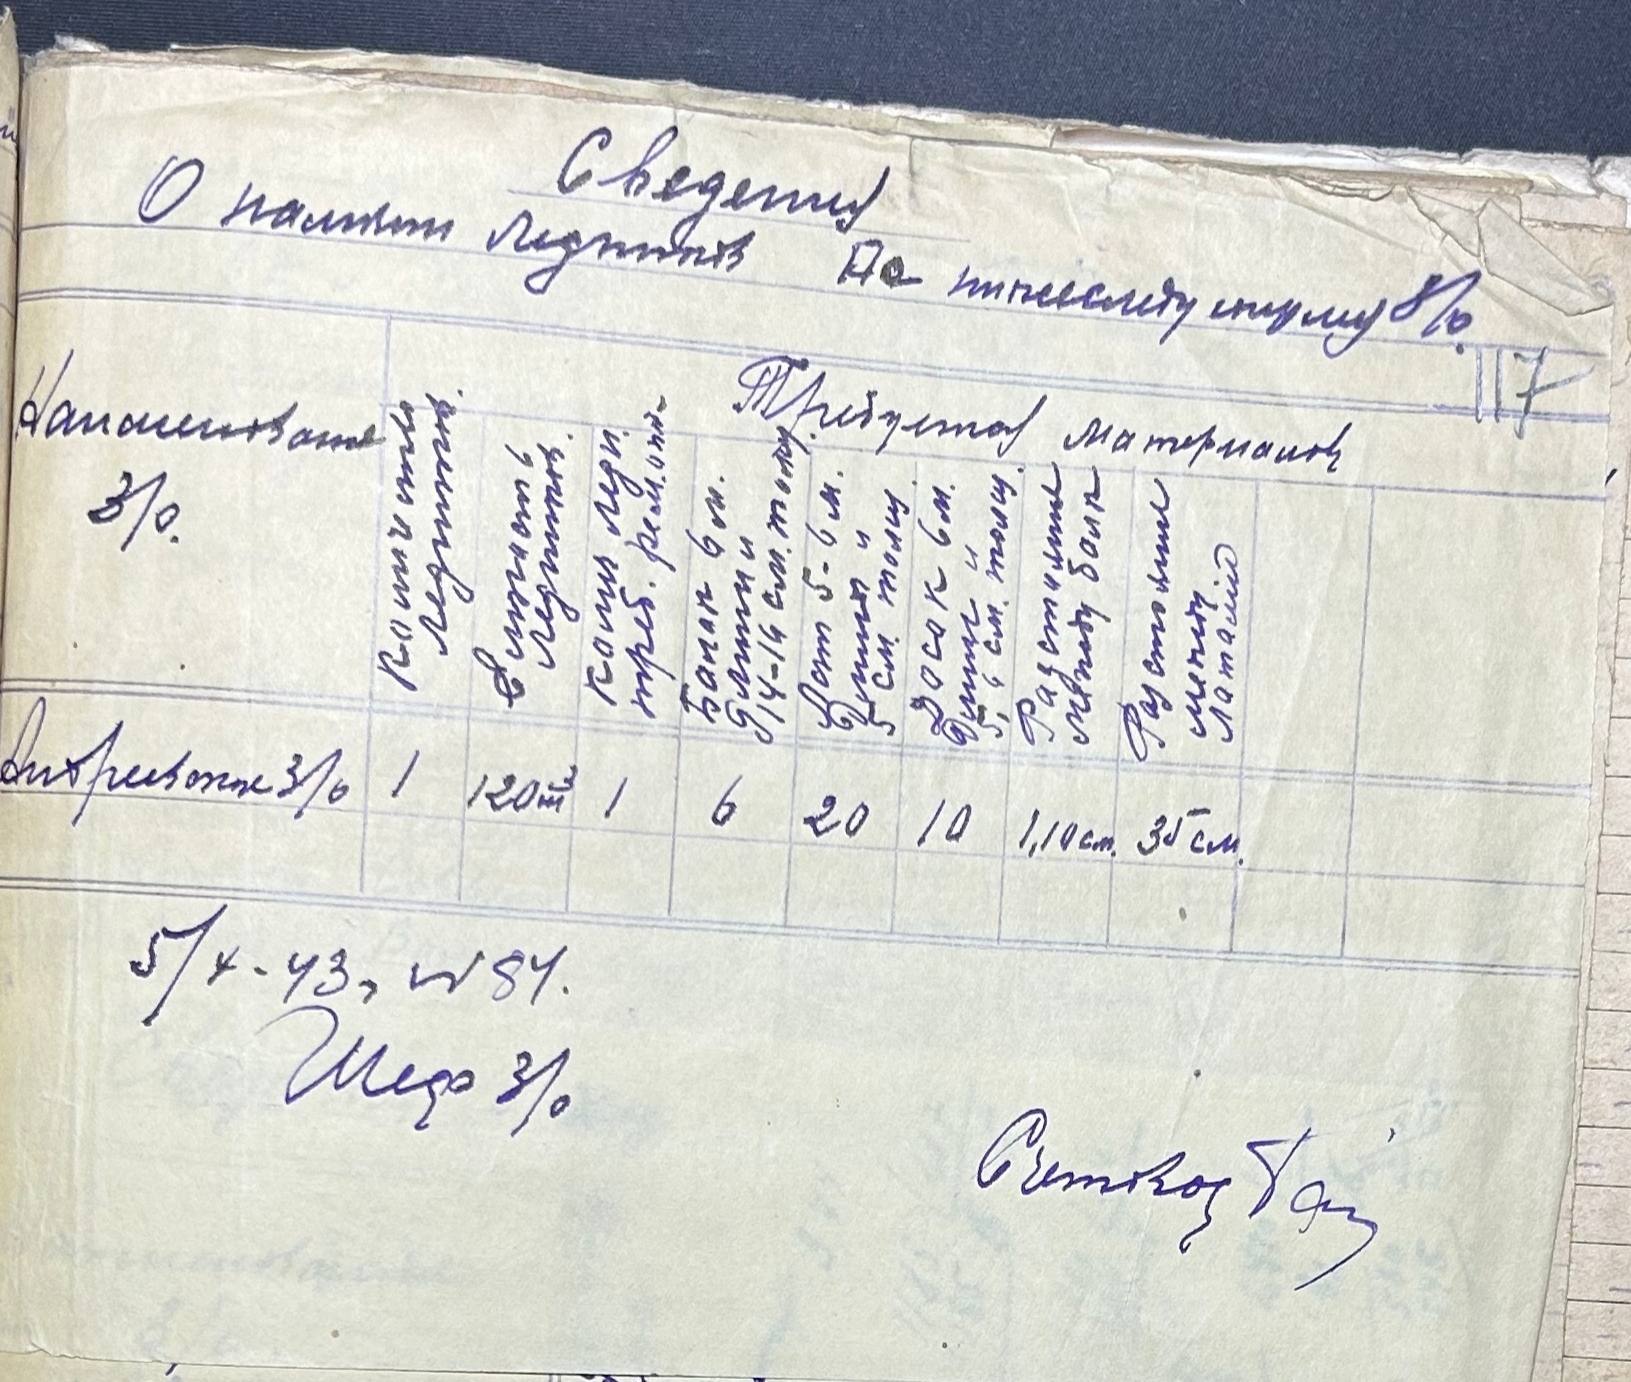 Сведения
О наличии Ледников По нижеследующему З/о.
117
Наименование З/о.
Количество Ледников.
Емкость Ледников.
Колич. Ледн. треб. ремонт-
Требуется материалов
Балак 6 м. Длины и 14-16 см. толщ
Лат 5-6 м. Длины и 5 см. толщ.
Досак 6 м. Длины и 5,6 см. толщ.
Растояние между балк
Растояние между Латами
З/о 1 120 м³ 1 6 20 10 1,10 см. 35 см.
5/X-43 г. № 84.
Шеф З/о
Счетовод